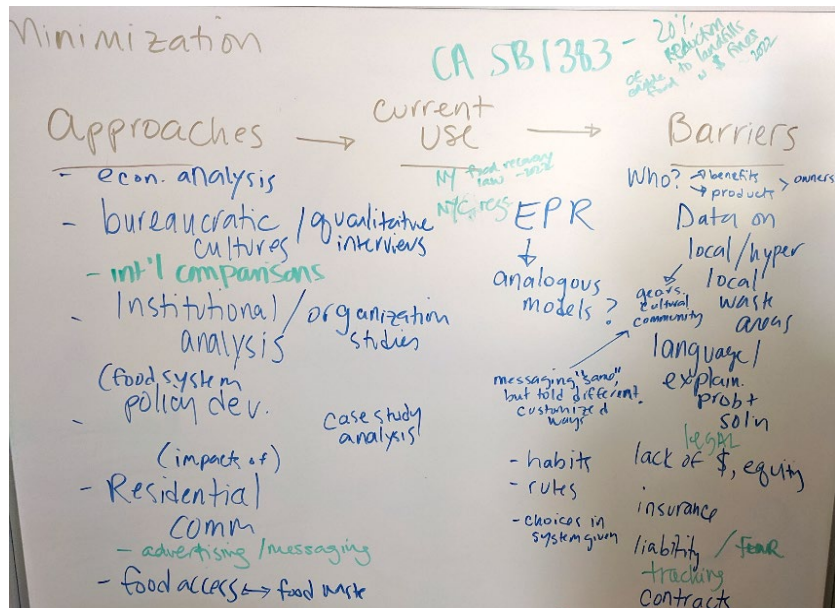 Minimization
CA SB1383 - 20%
Reduction
of edible
food to landfills
w $ fines
2022
Approaches → current use → Barriers
- econ. analysis
- bureaucratic cultures / qualitative interviews
- int'l comparisons
- Institutional analysis / organization studies
(food system
- policy dev.
case study
analysis
(impacts of)
- Residential
comm
- advertising / messaging
- food access ↔ food waste
NY food recovery
law - 2022
NYC regs
EPR
↓
analogous
models ?
messaging "same",
but told different
customized
ways
- habits
- rules
- choices in
system given
Who? → benefits
→ products > owners
Data on
local/hyper
local
waste
areas
cultural
community
language/
explain.
prob +
soln
legal
lack of $, equity
insurance
liability / FEAR
tracking
contracts